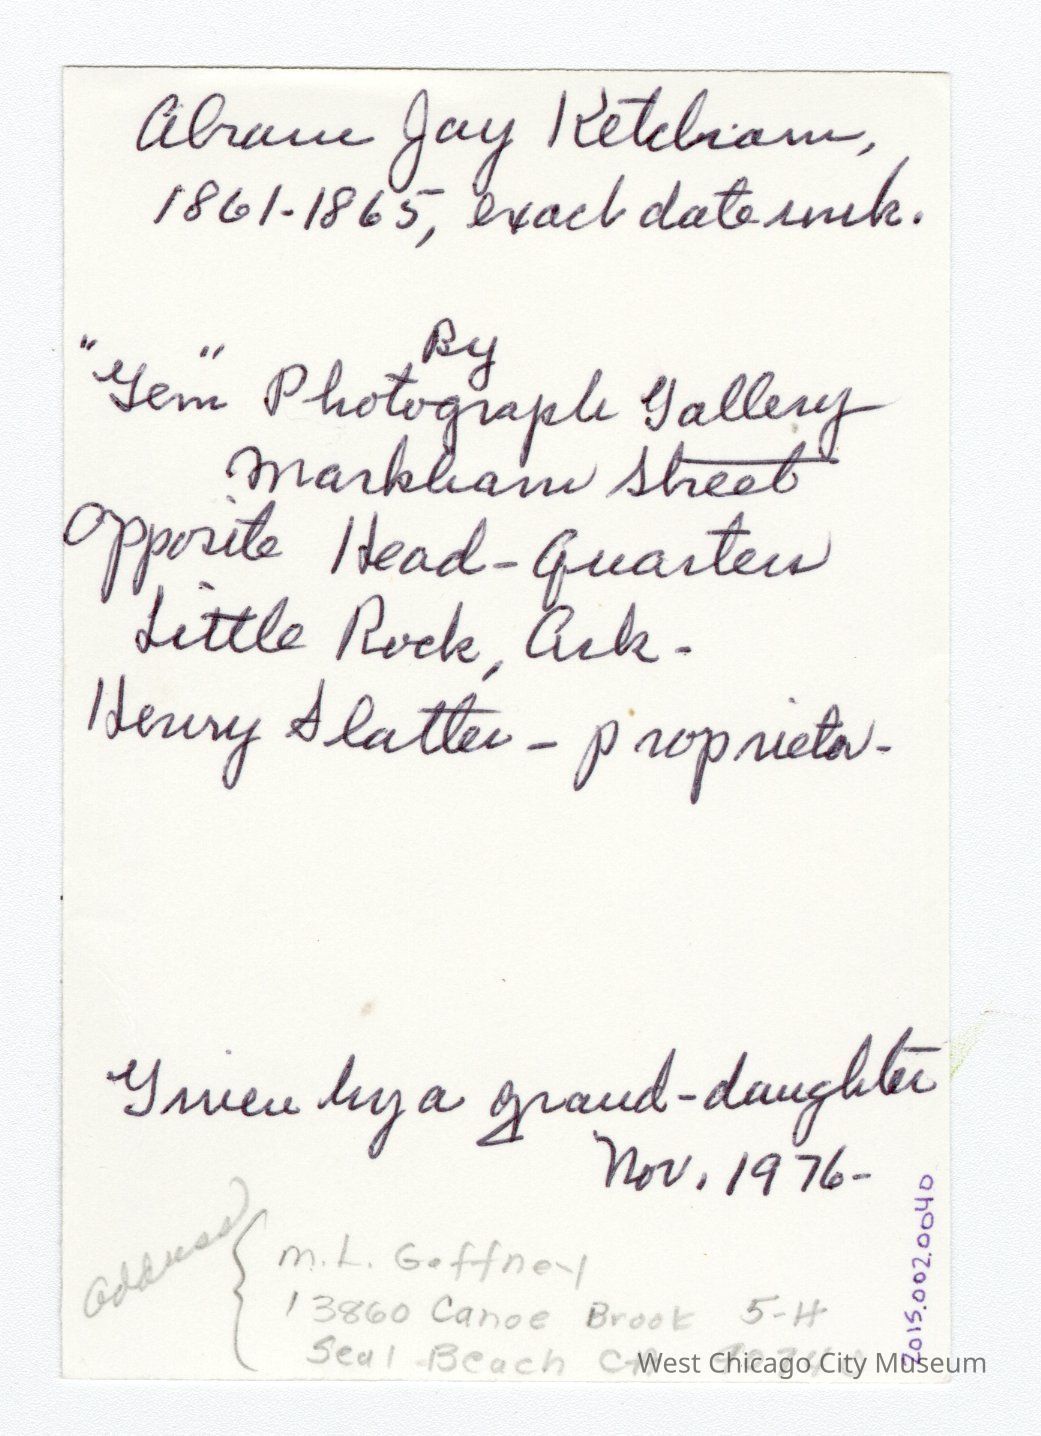 Abram Jay Ketcham,
1861-1865, exact date unk.
By
"Gem" Photograph Gallery
Markham Street
Opposite Head-Quarters
Little Rock, Ark-
Henry Slatter - proprietor-
Given by a grand-daughter
Nov. 1976-
address
M.L. Gaffney
13860 Canoe Brook 5-H
Seal Beach CA
2015.002.0040
West Chicago City Museum